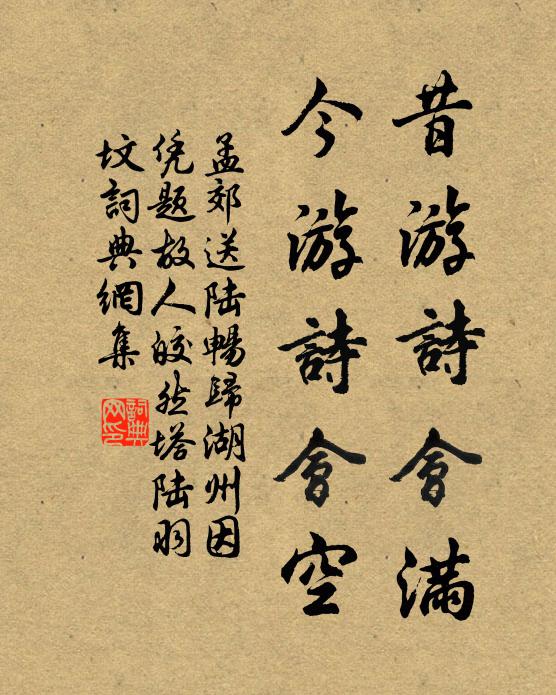 昔游詩會滿
今游詩會空
孟郊送陸暢歸湖州因
凭題故人皎然塔陸羽
坟詞典網集
詞典
网印